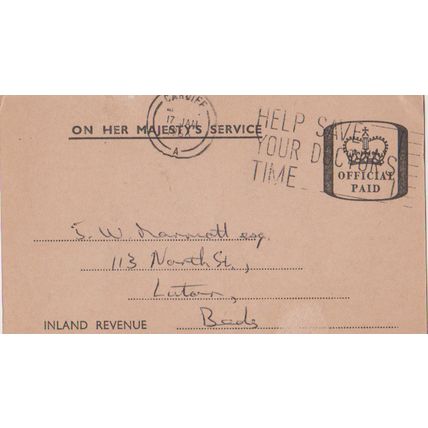 CARDIFF
17 JAN
A
ON HER MAJESTY'S SERVICE
HELP SAVE
YOUR DOCTOR'S
TIME
OFFICIAL
PAID
S. W. Marmott esq.
113 North St.,
Luton,
Beds
INLAND REVENUE